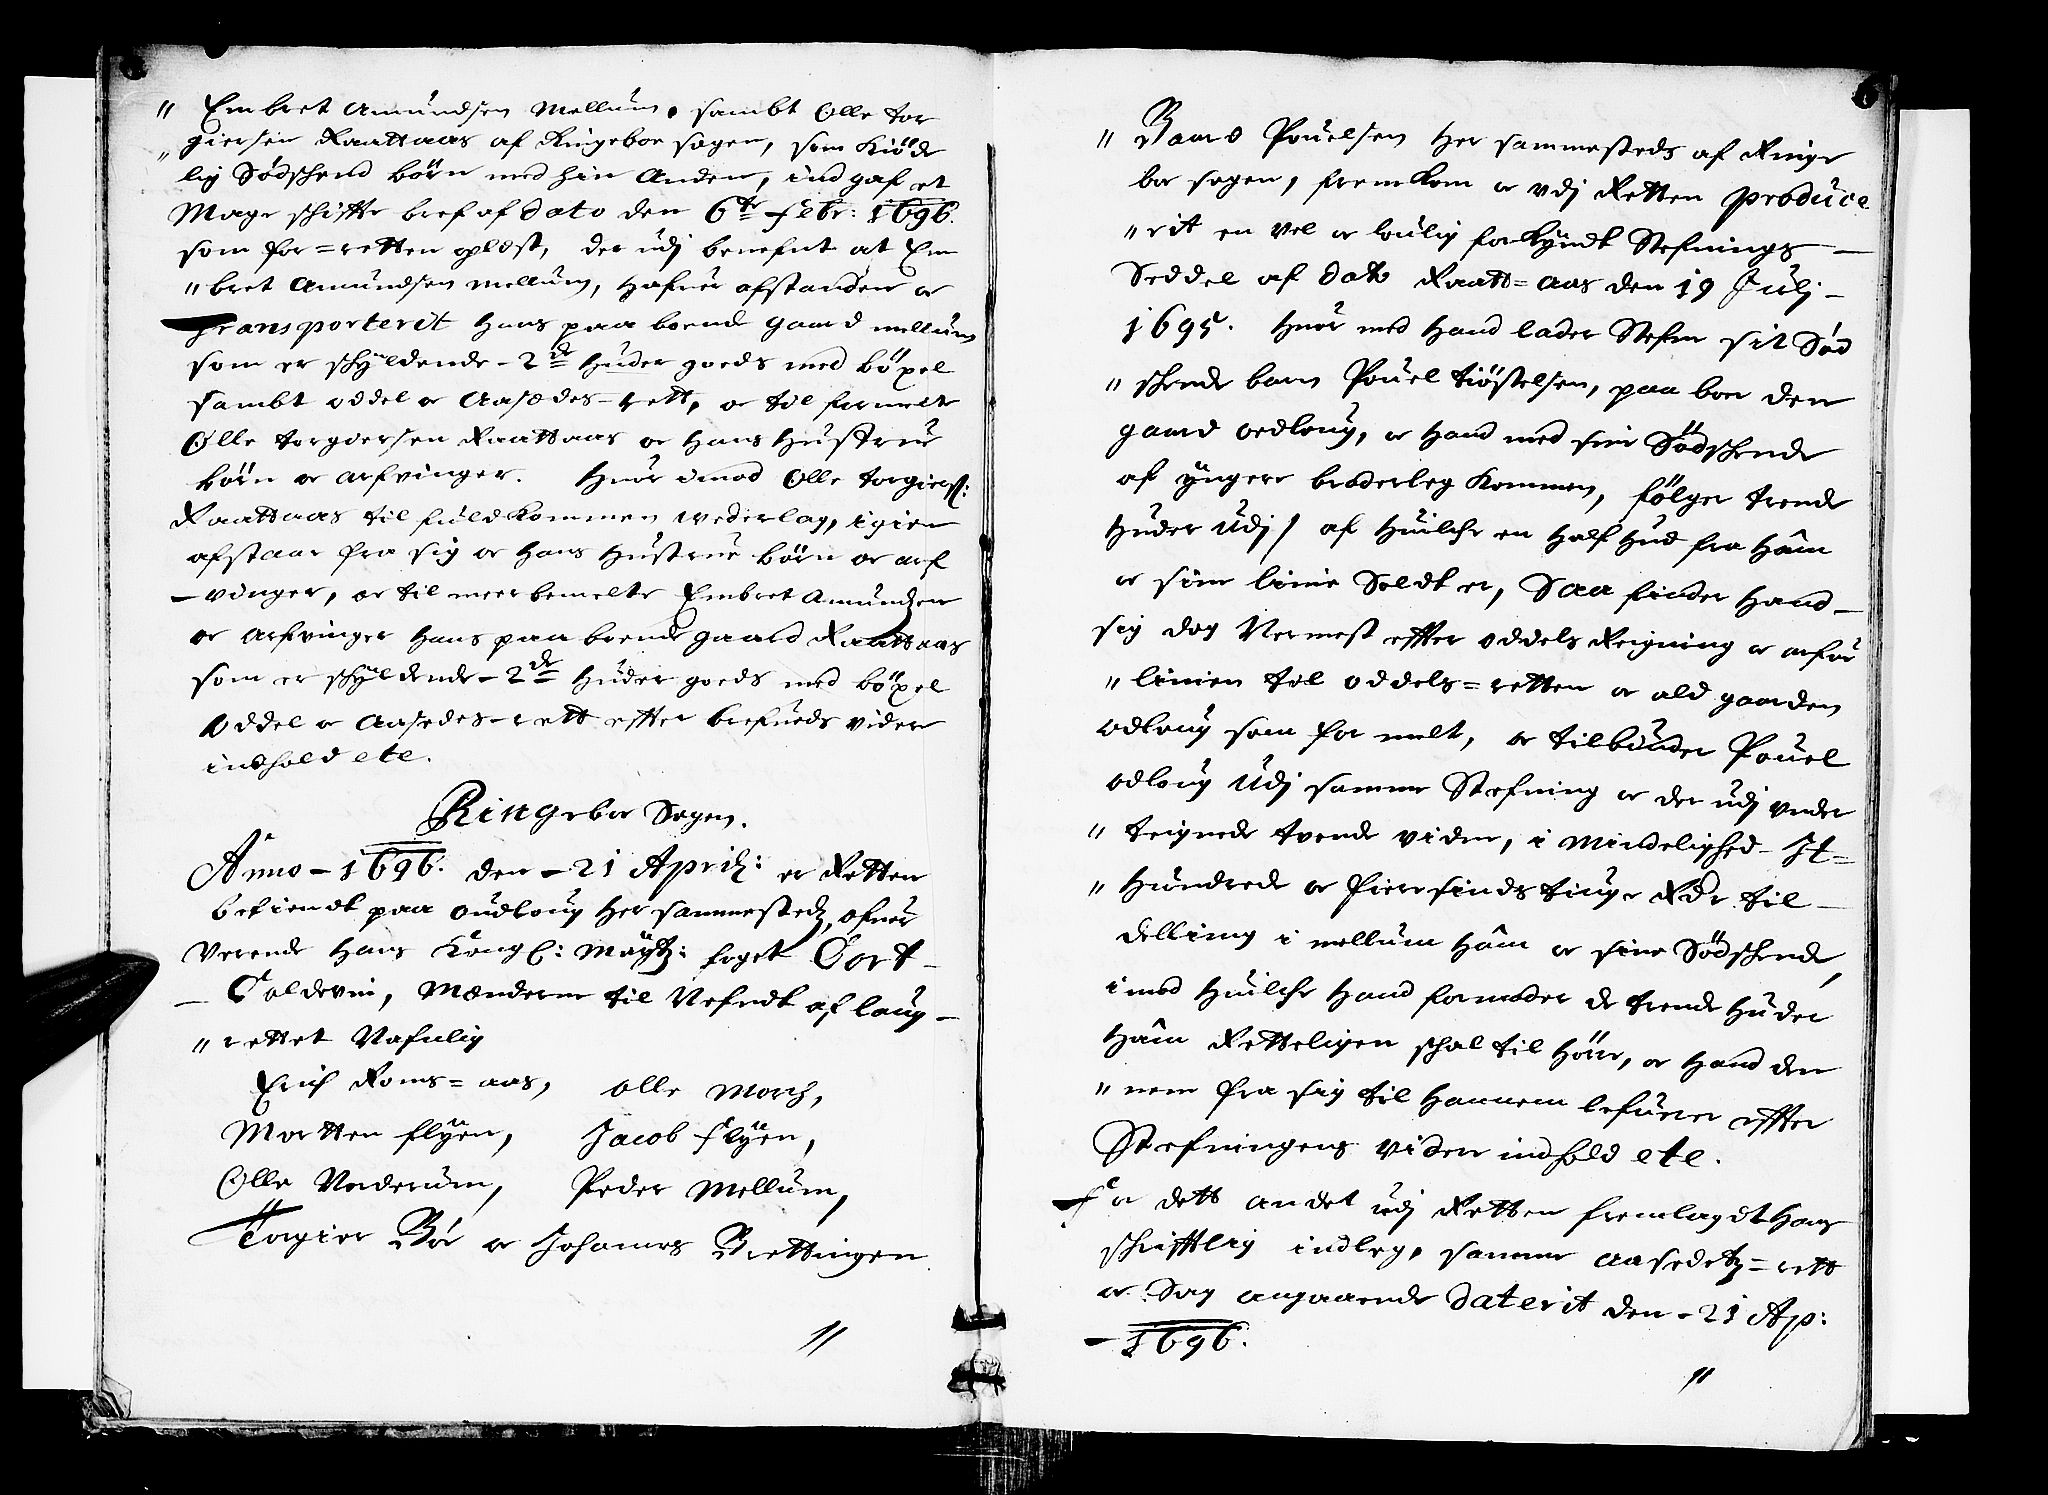 " Embret Amundsen Mellum, sambt Olle tor
" giersen Raattaas af Ringeboe sogen, som Kiöde
lig Södschend börn med hin Anden, ind gaf et
Mage schiffte bref af dato den 6te Febr: 1696.
som for=retten oplest, der udj benefnt at Em
" bret Amundsen mellum, hafuer afstanden oc
transporterit hans paa boende gaard mellum
som er schyldende - 2de huder goeds med böxel
sambt oddel oc Aasædes-rett, oc til formelte
Olle torgiersen Raattaas oc hans hustrue
börn oc arfvinger. Huor imod Olle torgiers:
Raattaas til fuldkommen vederlag, igien
afstaar fra sig oc hans hustrue börn oc arf
- vinger, oc til meerbemelte Embret Amundsen
oc arfvinger hans paa boende gaard Raattaas
som er schyldende - 2de huder goeds med böxel
Oddel oc Aasedes-rett effter brefueds videre
indhold etc.
Ringeboe Sogen.
Anno - 1696. den - 21 April: er Retten
betiendt paa oudloug her sammestedz, ofuer
verende hans Kongl: Maytz: foget Cort
- Coldevin, Mænderne til Nefndt af laug -
" rettet Nafnlig
Erich Roms=aas, Olle Morch,
Morten flÿen, Jacob flÿen,
Olle Venderum, Peder Mellum,
Torgier Bör oc Johannes Brettingen
"
6
" Baard Pouelsen her sammesteds af Ringe
boe sogen, fremkom oc udj Retten produce
" rit en vel oc loulig forkyndt Stefnings -
Seddel af dato Raatt=aas den 19 Julj -
1695. huor med hand lader Stefne sit Söd
" schende barn Pouel tiöstelsen, paa boe den
gaard oedloug, oc hand med sine Södschende
af yngere broderleg kommen, fölger trende
huder udj / af huilche en half hud fra hâm
oc sine linie Soldt er, Saa finder hand -
sig dog Nermest effter oddels Reigning oc arfue
" linien til oddels=retten oc ald gaarden
odloug som for melt, oc tilbinder Pouel
odloug udj samme Stefning oc der udj under
" teignede tvende viden, i Mindelighed - It=
" hundrede oc fieresindstiuge Rdr til -
delling i mellum hâm oc sine Södschende,
imod huilche hand formoder de trende huder
hâm Retteligen schal til höre, oc hand den
" nem fra sig til hannem lefuerer effter
Stefningens videre indhold etc.
For dett andet udj Retten fremlagdt hans
schrifftlig indleg, samme aasedetz=rett
oc Sag angaaende daterit den - 21 Ap:
- 1696.
"